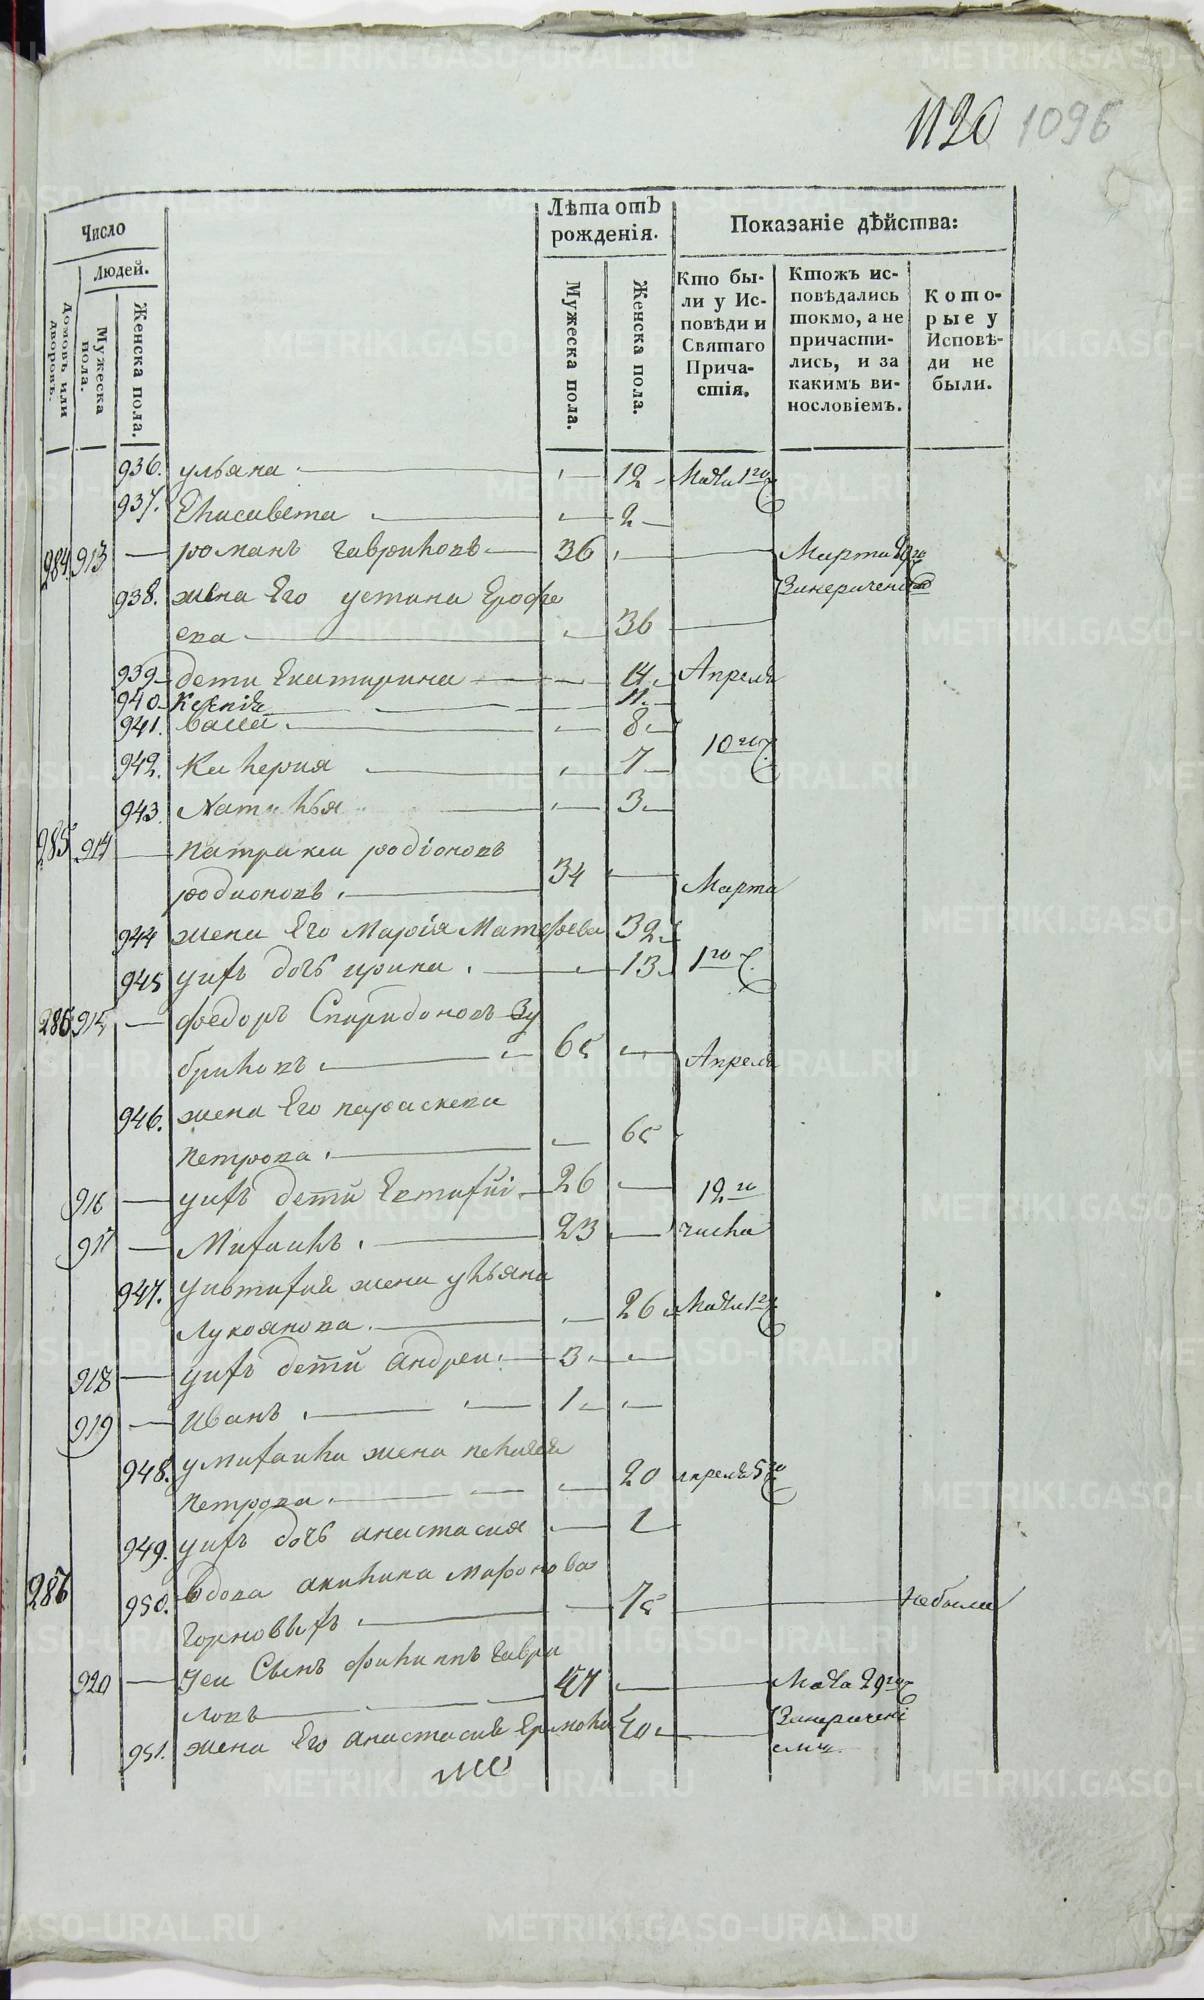 1120 1096
Число
Людей.
Домовъ или дворовъ.
Мужеска пола.
Женска пола.
Лѣта отъ рожденія.
Мужеска пола.
Женска пола.
Показаніе дѣйства:
Кто бы-
ли у Ис-
повѣди и
Святаго
Прича-
стія.
Ктожъ ис-
повѣдались
токмо, а не
причасти-
лись, и за
какимъ ви-
нословіемъ.
Кото-
рые у
Исповѣ-
ди не
были.
936. ульяна 12 Маія 1го
937. Елисавета 2
284 913 романъ гавриловъ 36 Марта
938. жена Его устина Ерофѣ
ева 36
939 дети Екатирина 14 Апреля
940 Ксенія 11
941. 8
10го
942. Калерия 7
943. Наталья 3
285 914 Патрикеи родіоновъ
родионовъ 34 Марта
944 жена Его Марія Матефеева 32
945 унихъ дочь ирина 13 1го
286 915 федоръ Спиридоновъ Зу
бриловъ 65 Апреля
946. жена Его параскева
Петрова 65
916 унихъ дети Евтифіи 26 12го
917 Михаилъ 23 числа
947. уивтифия жена ульяна
Лукоянова 26 Маія 1го
918 унихъ дети Андреи 3
919 Иванъ 1
948. умихаила жена пелагея
Петрова 20 апреля 5го
949. унихъ дочь анастасия 1
287 950. вдова акилина Миронова
Горновыхъ 75 небыли
920 Уеи Сынъ филиппъ Гаври
ловъ 47 Маія 29го
951. жена Его анастасия Ермола 40